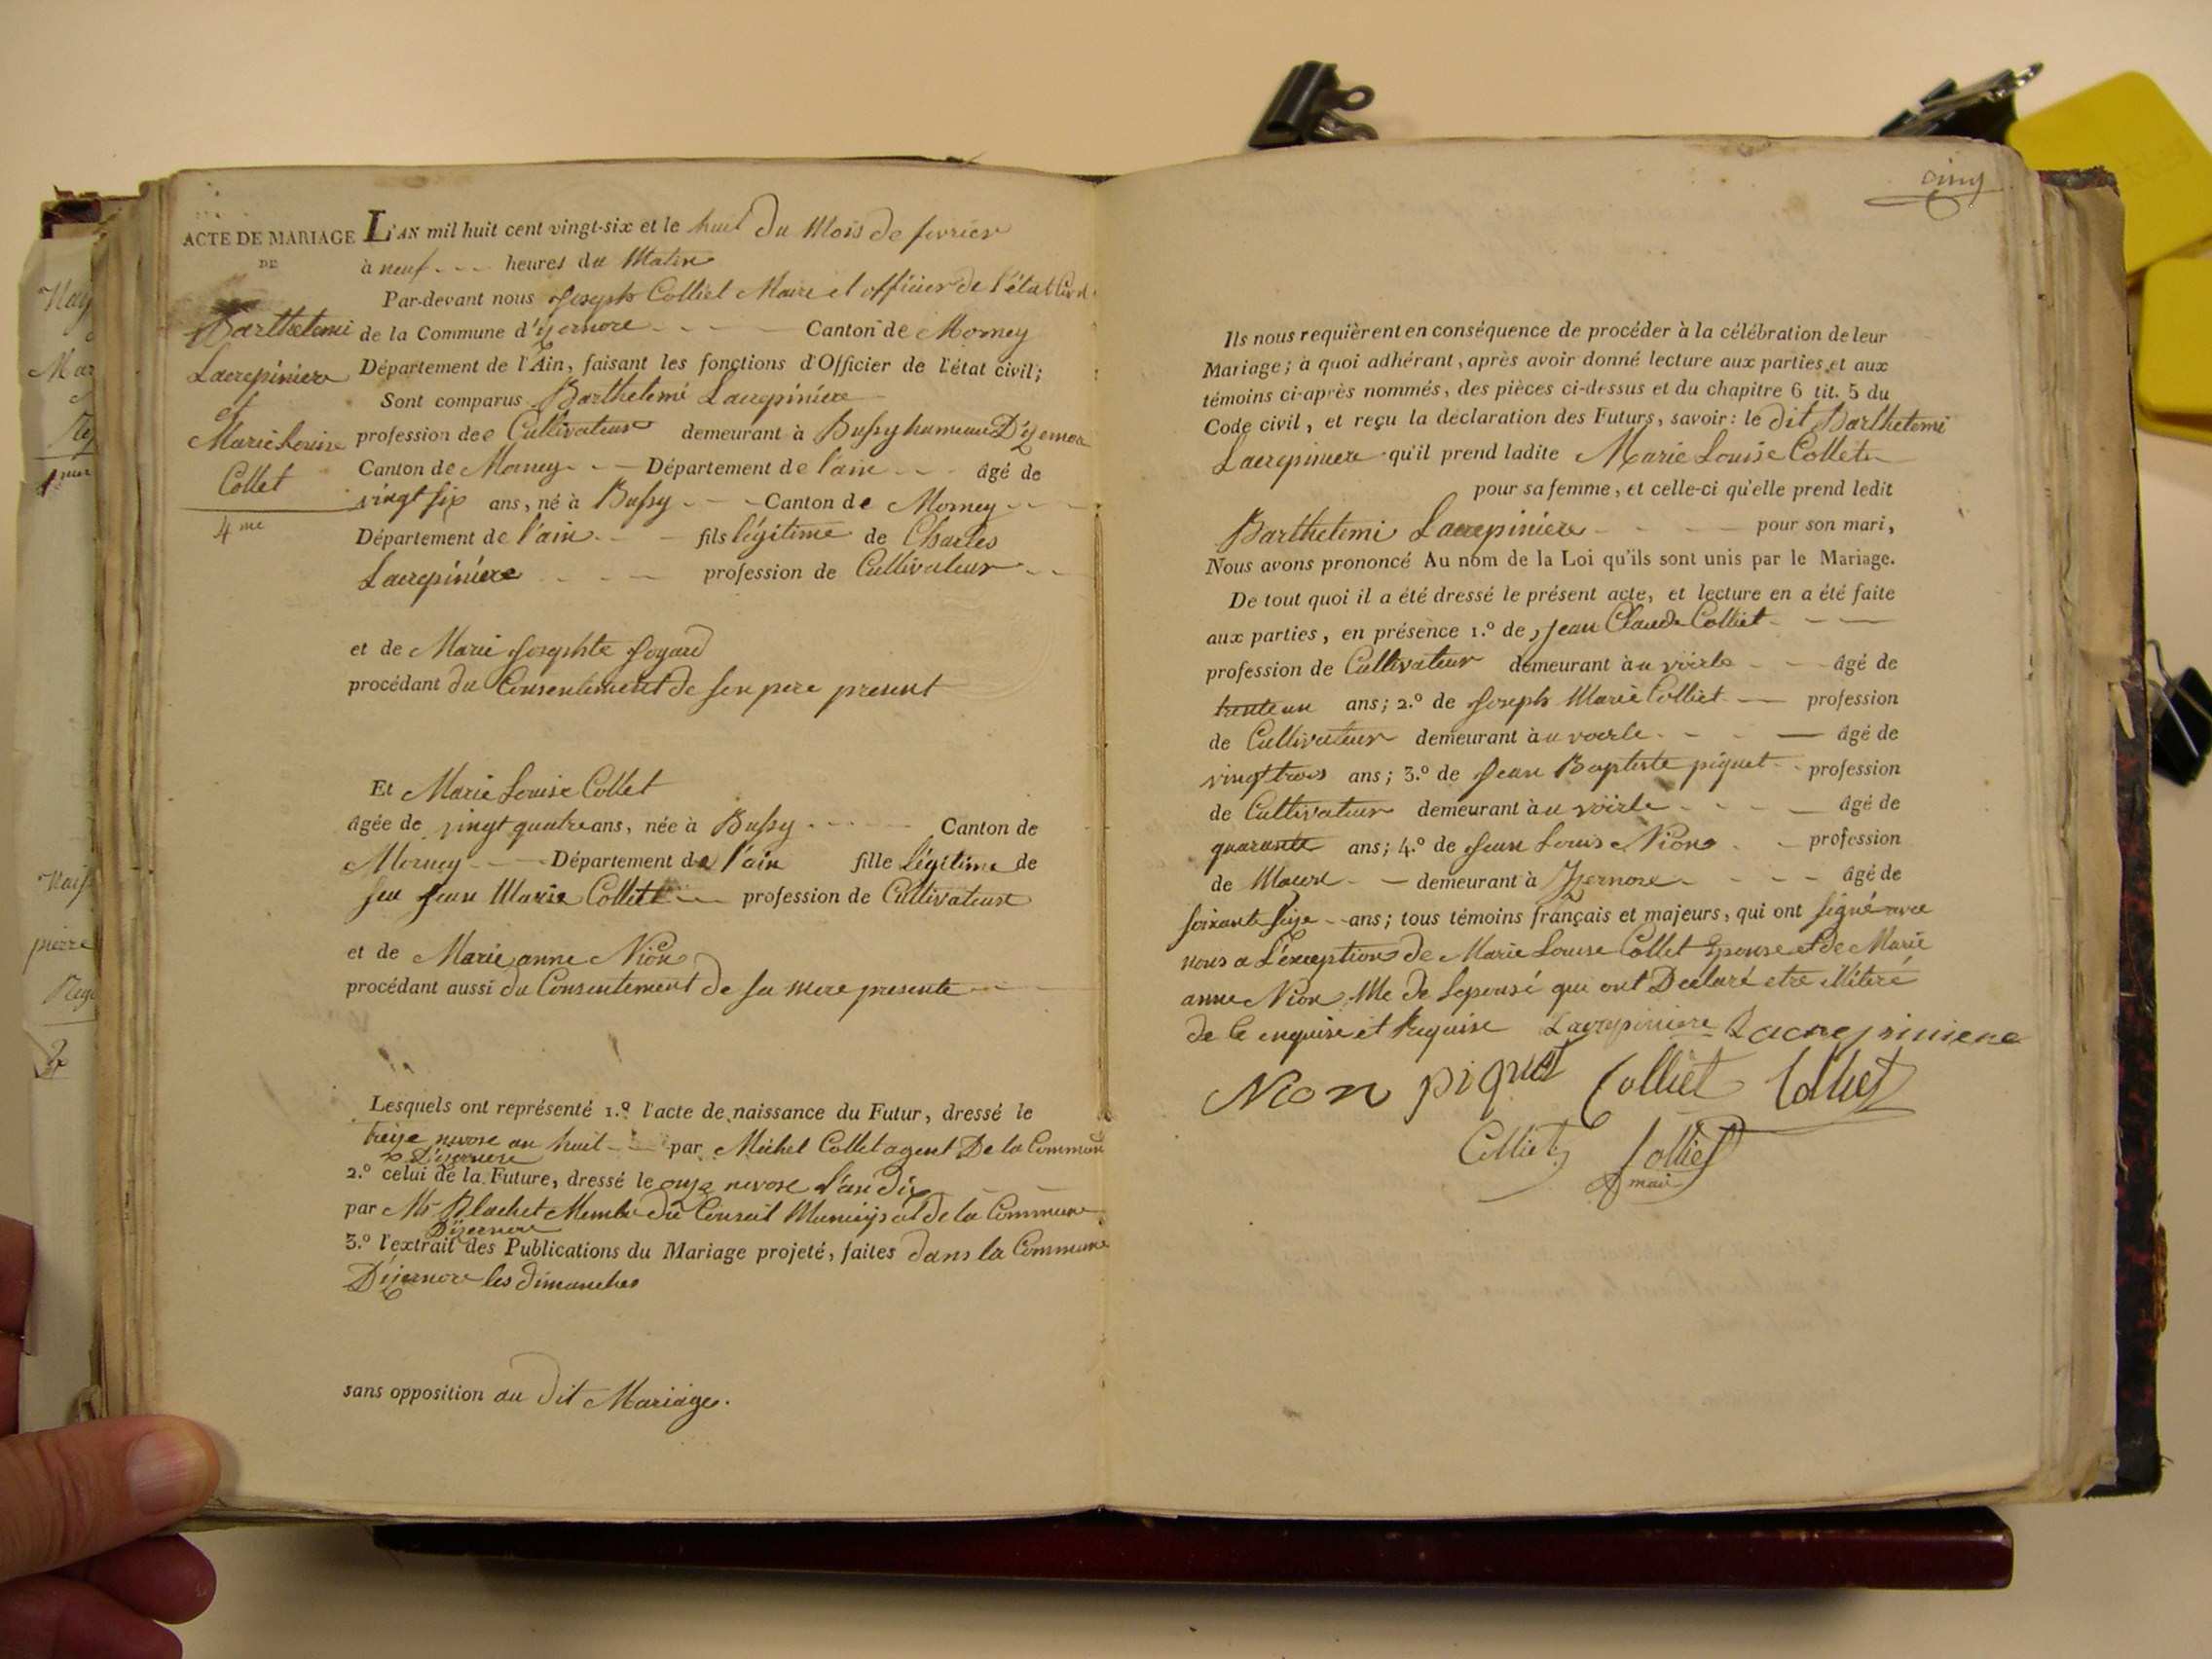 ACTE DE MARIAGE
DE
Barthelemi
Lacrepiniere
et
Marie Louise
Collet
4me
L'AN mil huit cent vingt-six et le huit du Mois de fevrier
à neuf heures du Matin
Par-devant nous Joseph Colliet Maire et officier de l'état Civil
de la Commune d'yzernore Canton de Morney
Département de l'Ain, faisant les fonctions d'Officier de l'état civil;
Sont comparus Barthelemi Lacrepiniere
profession de Cultivateur demeurant à Bussy hameau D'yzernore
Canton de Morney Département de l'ain âgé de
vingt six ans, né à Bussy Canton de Morney
Département de l'ain fils légitime de Charles
Lacrepiniere profession de Cultivateur
et de Marie Josephte Goyard
procédant du Consentement de son pere present
Et Marie Louise Collet
âgée de vingt quatre ans, née à Bussy Canton de
Mornay Département de l'ain fille légitime de
feu Jean Marie Collet profession de Cultivateur
et de Marie anne Nion
procédant aussi du Consentement de sa mere presente
Lesquels ont représenté 1.º l'acte de naissance du Futur, dressé le
treize nivose an huit par Michel Collet agent De la Commune
D'yzernore
2.º celui de la Future, dressé le onze nivose l'an dix
par Mr Blachet Membre du Conseil Municipal de la Commune
D'yzernore
3.º l'extrait des Publications du Mariage projeté, faites dans la Commune
D'yzernore les dimanches
sans opposition au dit Mariage.
cinq
Ils nous requièrent en conséquence de procéder à la célébration de leur
Mariage; à quoi adhérant, après avoir donné lecture aux parties et aux
témoins ci-après nommés, des pièces ci-dessus et du chapitre 6 tit. 5 du
Code civil, et reçu la déclaration des Futurs, savoir: le dit Barthelemi
Lacrepiniere qu'il prend ladite Marie Louise Collet
pour sa femme, et celle-ci qu'elle prend ledit
Barthelemi Lacrepiniere pour son mari,
Nous avons prononcé Au nom de la Loi qu'ils sont unis par le Mariage.
De tout quoi il a été dressé le présent acte, et lecture en a été faite
aux parties, en présence 1.º de Jean Claude Colliet
profession de Cultivateur demeurant à u voerle âgé de
trente un ans; 2.º de Joseph Marie Colliet profession
de Cultivateur demeurant à u voerle âgé de
vingt trois ans; 3.º de Jean Baptiste piquet profession
de Cultivateur demeurant à u voerle âgé de
quarante ans; 4.º de Jean Louis Nion profession
de demeurant à Yzernore âgé de
soixante seize ans; tous témoins français et majeurs, qui ont signé avec
nous a L'exception de Marie Louise Collet Epouse et de Marie
anne Nion Me de Lepouse qui ont Declaré etre illiteré
de ce enquise et Requise Lacrepiniere Lacrepiniere
Nion piquet Colliet Colliet
Colliet Colliet
mair